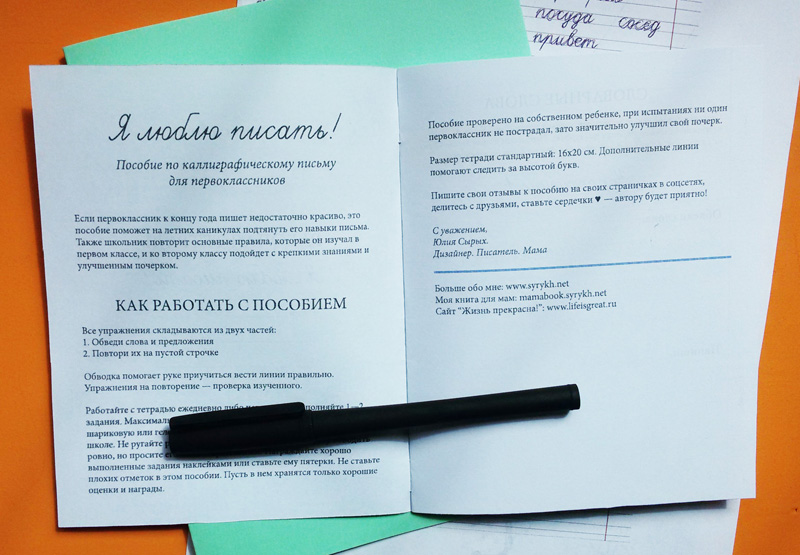 посуда сосед
привет
Я люблю писать!
Пособие по каллиграфическому письму
для первоклассников
Если первоклассник к концу года пишет недостаточно красиво, это
пособие поможет на летних каникулах подтянуть его навыки письма.
Также школьник повторит основные правила, которые он изучал в
первом классе, и ко второму классу подойдет с крепкими знаниями и
улучшенным почерком.
КАК РАБОТАТЬ С ПОСОБИЕМ
Все упражнения складываются из двух частей:
1. Обведи слова и предложения
2. Повтори их на пустой строчке
Обводка помогает руке приучиться вести линии правильно.
Упражнения на повторение — проверка изученного.
Работайте с тетрадью ежедневно либо 1—2
задания.
шариковую или
школе. Не ругайте
ровно, но просите хорошо
выполненные задания наклейками или ставьте ему пятерки. Не ставьте
плохих отметок в этом пособии. Пусть в нем хранятся только хорошие
оценки и награды.
Пособие проверено на собственном ребенке, при испытаниях ни один
первоклассник не пострадал, зато значительно улучшил свой почерк.
Размер тетради стандартный: 16х20 см. Дополнительные линии
помогают следить за высотой букв.
Пишите свои отзывы к пособию на своих страничках в соцсетях,
делитесь с друзьями, ставьте сердечки ♥ — автору будет приятно!
С уважением,
Юлия Сырых.
Дизайнер. Писатель. Мама
Больше обо мне: www.syrykh.net
Моя книга для мам: mamabook.syrykh.net
Сайт “Жизнь прекрасна!”: www.lifeisgreat.ru